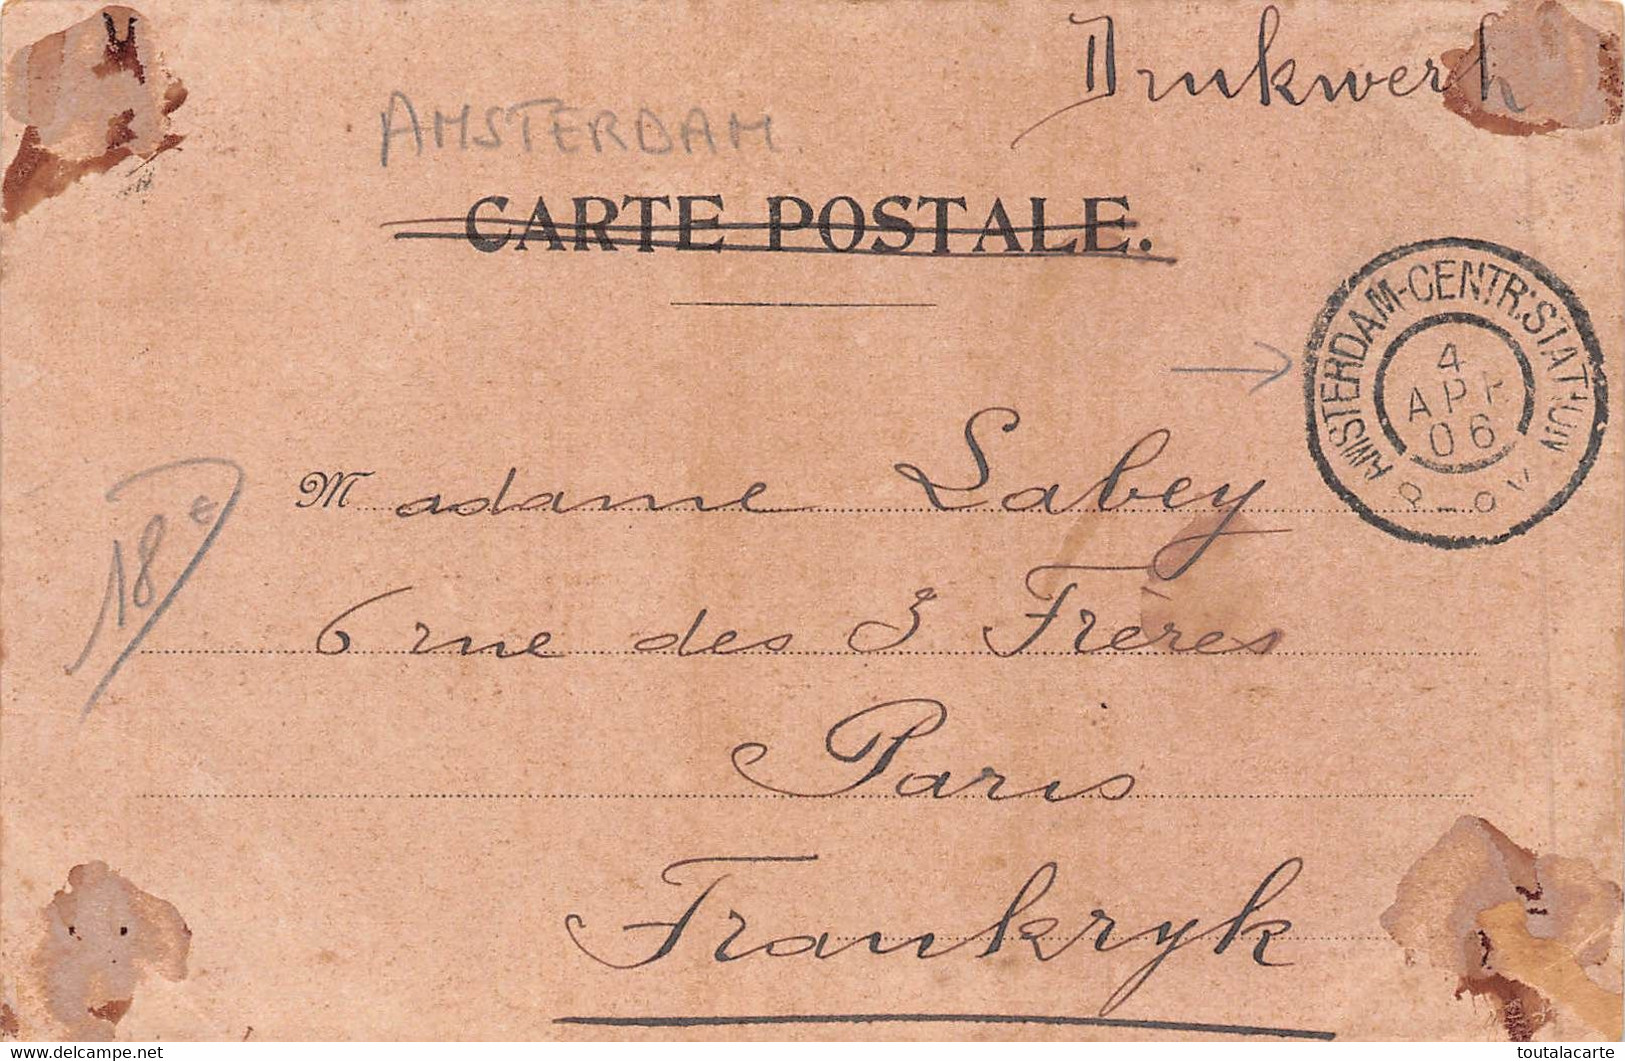 Drukwerk
AMSTERDAM.
CARTE POSTALE.
AMSTERDAM-CENTR:STATION
4
APR
06
Madame Labey
18€
6 rue des 3 Frères
Paris
Frankryk
delcampe.net
toutalacarte